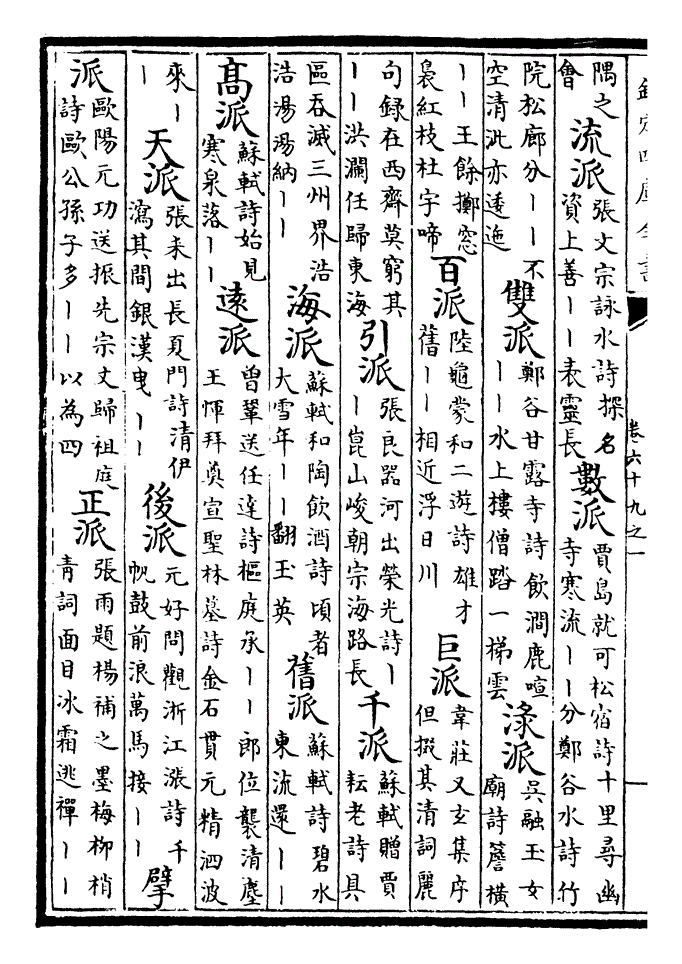 欽定四庫全書
卷六十九之一
隅之會 流派 張文宗詠水詩探名資上善丨丨表靈長 數派 賈島就可松宿詩十里尋幽寺寒流丨丨分鄭谷水詩竹
院松廊分丨丨不空清泚亦逶迤 雙派 鄭谷甘露寺詩飲澗鹿喧丨丨水上樓僧踏一梯雲 淥派 吳融玉女廟詩簷橫
丨丨王餘擲窓裊紅枝杜宇啼 百派 陸龜蒙和二遊詩雄才舊丨丨相近浮日川 巨派 韋莊又玄集序但掇其清詞麗
句録在西齋莫窮其丨丨洪瀾任歸東海 引派 張良器河出榮光詩丨丨崑山峻朝宗海路長 千派 蘇軾贈賈耘老詩具
區吞滅三州界浩浩湯湯納丨丨 海派 蘇軾和陶飲酒詩頃者大雪年丨丨翻玉英 舊派 蘇軾詩碧水東流還丨丨
高派 蘇軾詩始見寒泉落丨丨 遠派 曾鞏送任逵詩樞庭承丨丨郎位襲清塵王惲拜奠宣聖林墓詩金石貫元精泗波
來丨丨 天派 張耒出長夏門詩清伊瀉其間銀漢曳丨丨 後派 元好問觀浙江漲詩千帆鼓前浪萬馬接丨丨 擘
派 歐陽元功送振先宗丈歸祖庭詩歐公孫子多丨丨以為四 正派 張雨題楊補之墨梅柳梢青詞面目冰霜逃禪丨丨